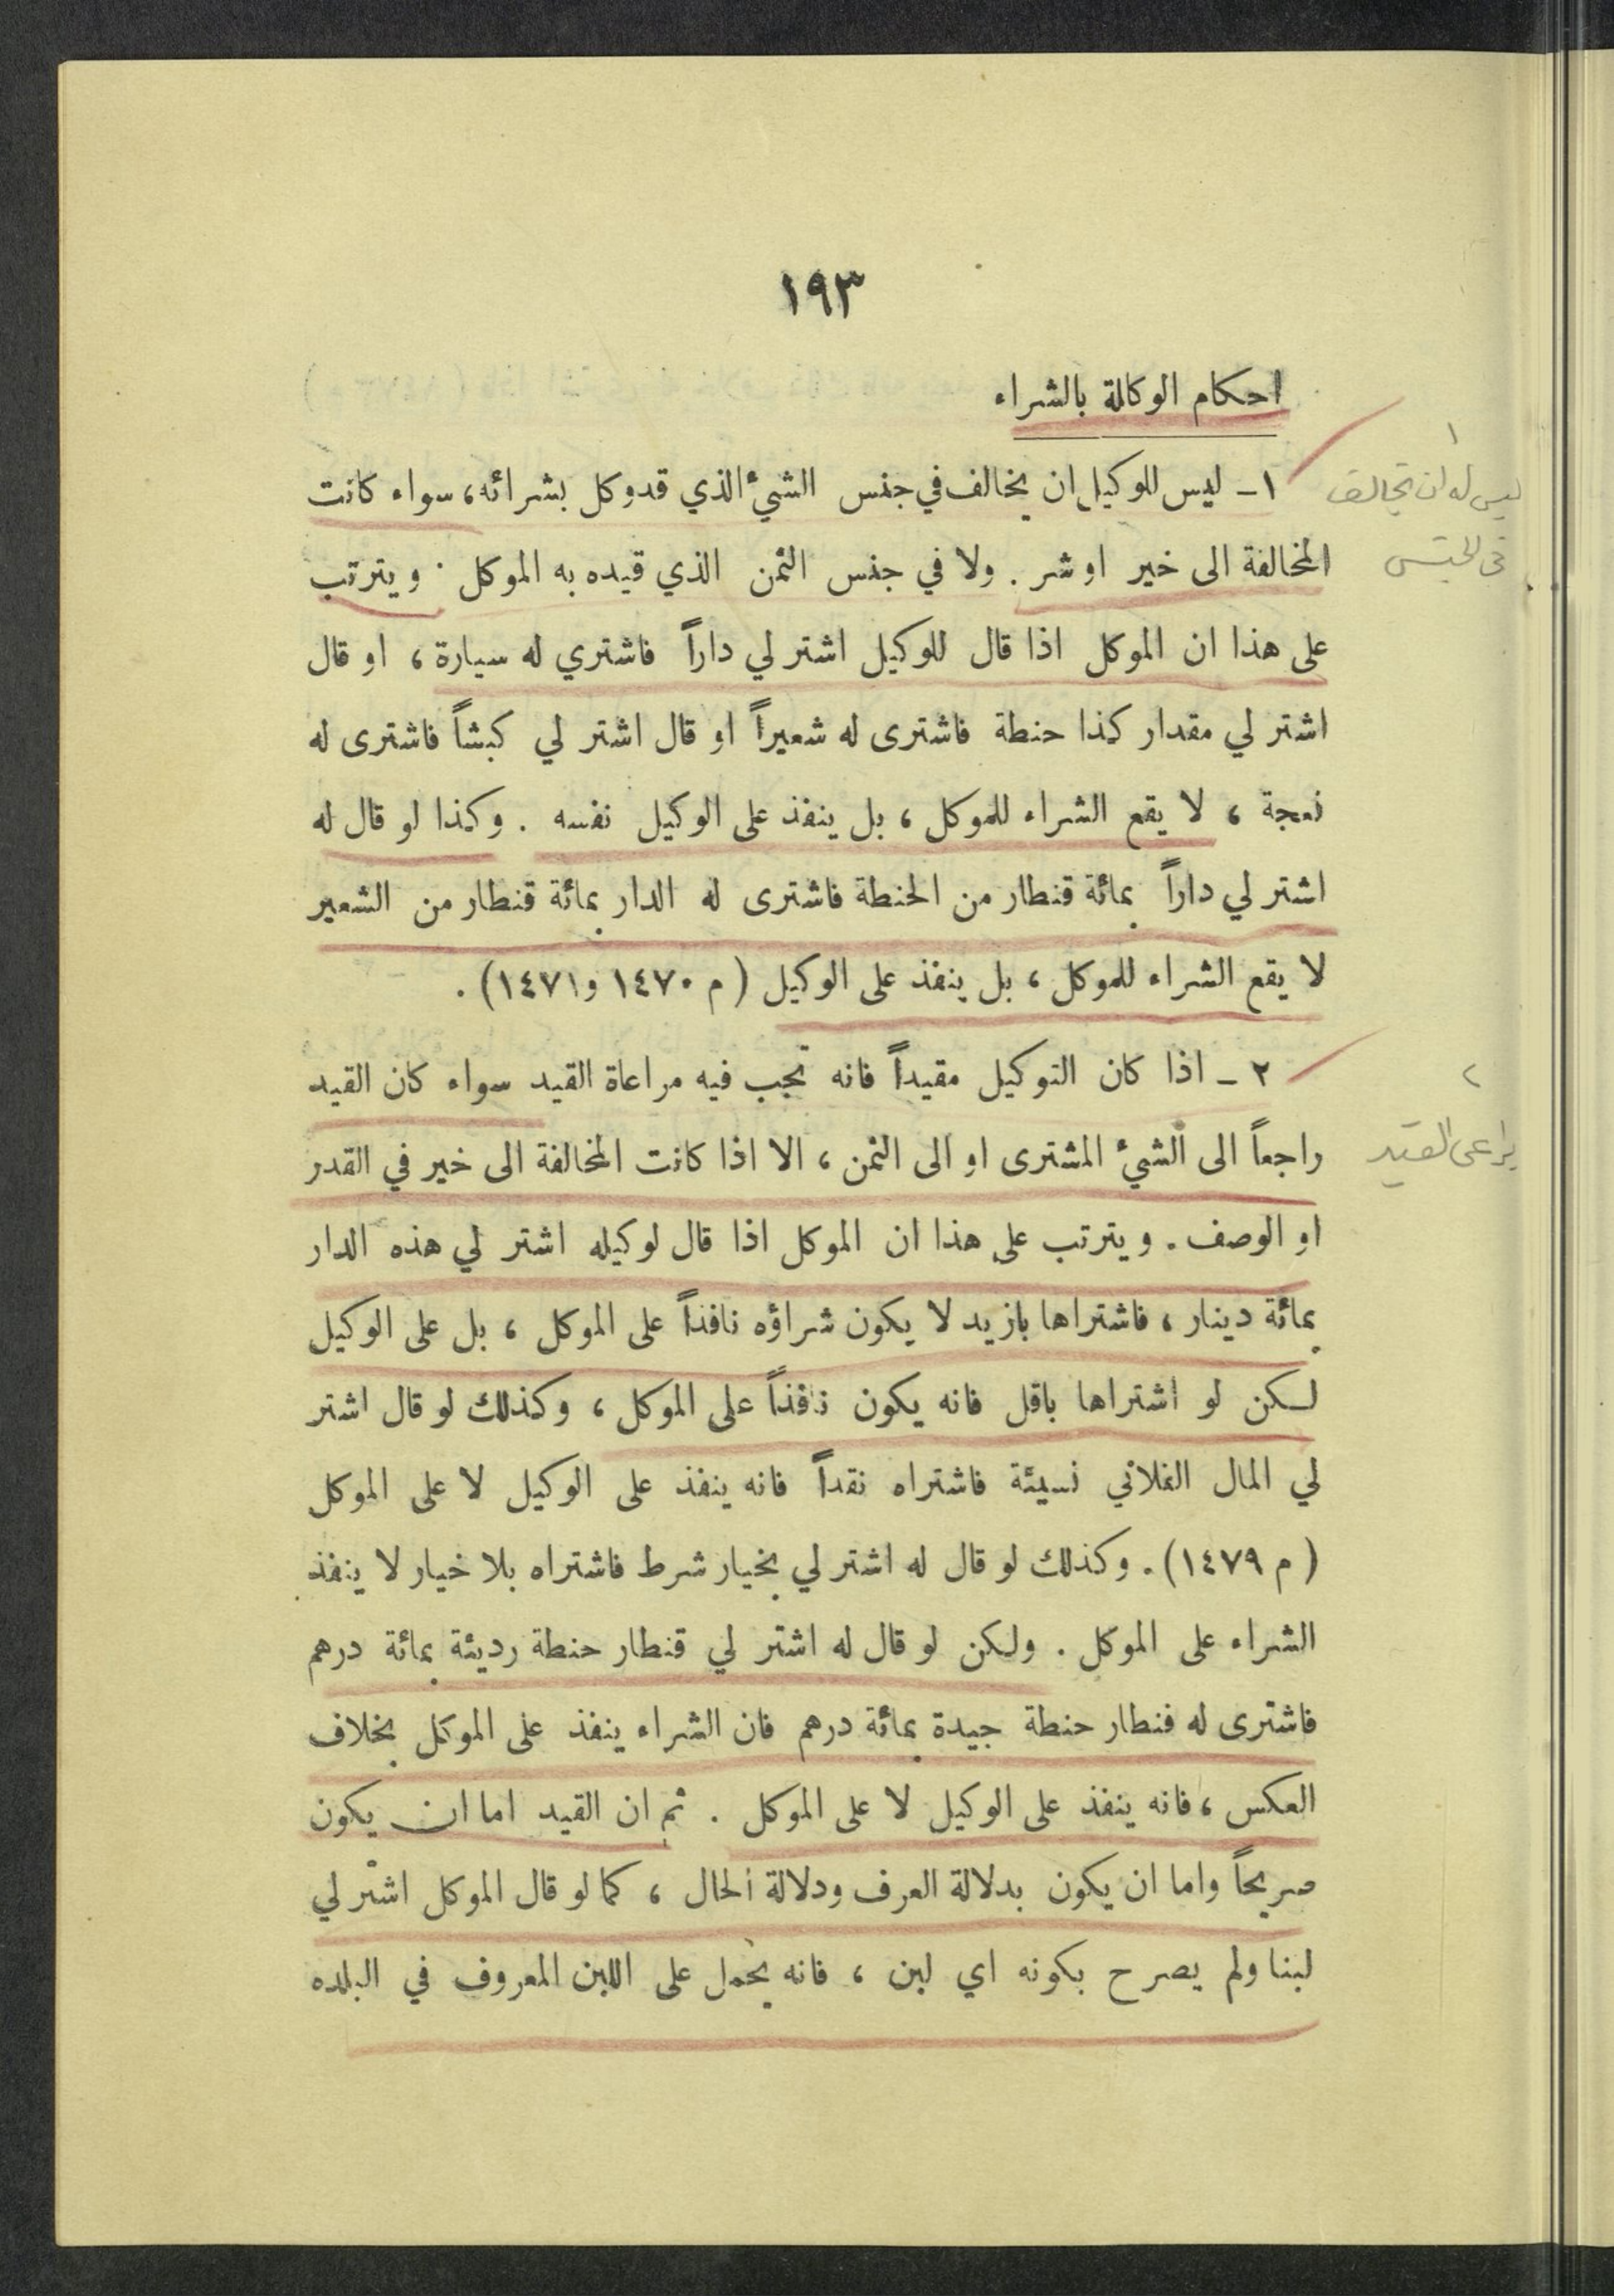 ١٩٣
احكام الوكالة بالشراء
١ ـ ليس للوكيل ان يخالف في جنس الشيء الذي قد وكل بشرائه، سواء كانت
المخالفة الى خير او شر . ولا في جنس الثمن الذي قيده به الموكل . ويترتب
على هذا ان الموكل اذا قال للوكيل اشتر لي داراً فاشتري له سيارة ، او قال
اشتر لي مقدار كذا حنطة فاشترى له شعيراً او قال اشتر لي كبشاً فاشترى له
نعجة ، لا يقع الشراء للموكل ، بل ينفذ على الوكيل نفسه . وكذا لو قال له
اشتر لي داراً بمائة قنطار من الحنطة فاشترى له الدار بمائة قنطار من الشعير
لا يقع الشراء للموكل ، بل ينفذ على الوكيل ( م ١٤٧٠ و١٤٧١) .
٢ ـ اذا كان التوكيل مقيداً فانه تجب فيه مراعاة القيد سواء كان القيد
راجعاً الى الشيء المشترى او الى الثمن ، الا اذا كانت المخالفة الى خير في القدر
او الوصف . ويترتب على هذا ان الموكل اذا قال لوكيله اشتر لي هذه الدار
بمائة دينار ، فاشتراها بازيد لا يكون شراؤه نافذاً على الموكل ، بل على الوكيل
لكن لو اشتراها باقل فانه يكون نافذاً على الموكل ، وكذلك لو قال اشتر
لي المال الفلاني نسيئة فاشتراه نقداً فانه ينفذ على الوكيل لا على الموكل
( م ١٤٧٩) . وكذلك لو قال له اشتر لي بخيار شرط فاشتراه بلا خيار لا ينفذ
الشراء على الموكل . ولكن لو قال له اشتر لي قنطار حنطة رديئة بمائة درهم
فاشترى له قنطار حنطة جيدة بمائة درهم فان الشراء ينفذ على الموكل بخلاف
العكس ، فانه ينفذ على الوكيل لا على الموكل . ثم ان القيد اما ان يكون
صريحاً واما ان يكون بدلالة العرف ودلالة الحال ، كما لو قال الموكل اشتر لي
لبنا ولم يصرح بكونه اي لبن ، فانه يحمل على اللبن المعروف في البلده
١
ليس له ان يخالف
في الجنس
٢
يراعى القيد